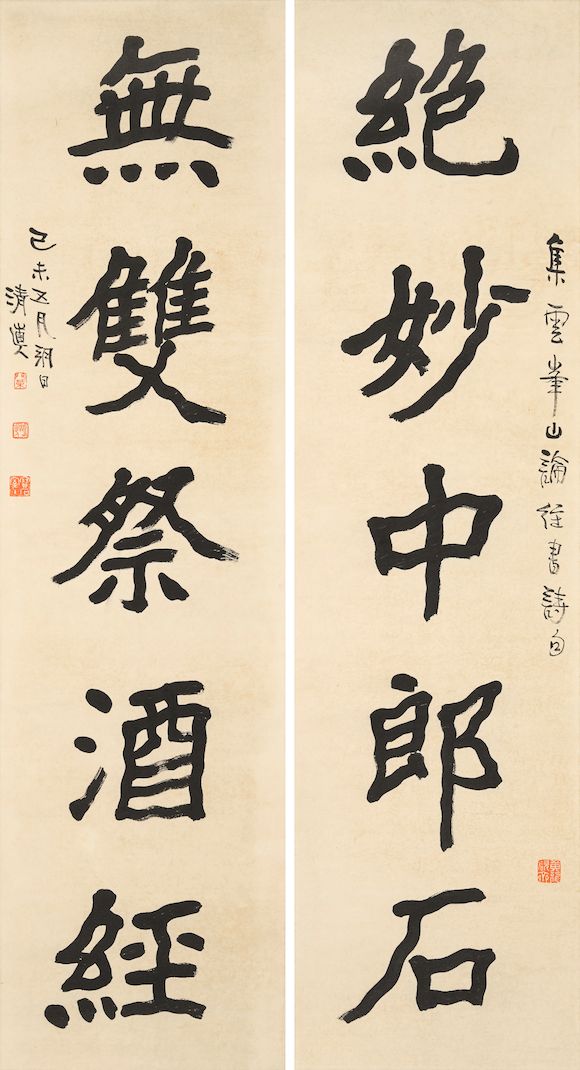 集雲峯山論經書詩句
絶妙中郎石
無雙祭酒經
己未五月朔日
清真